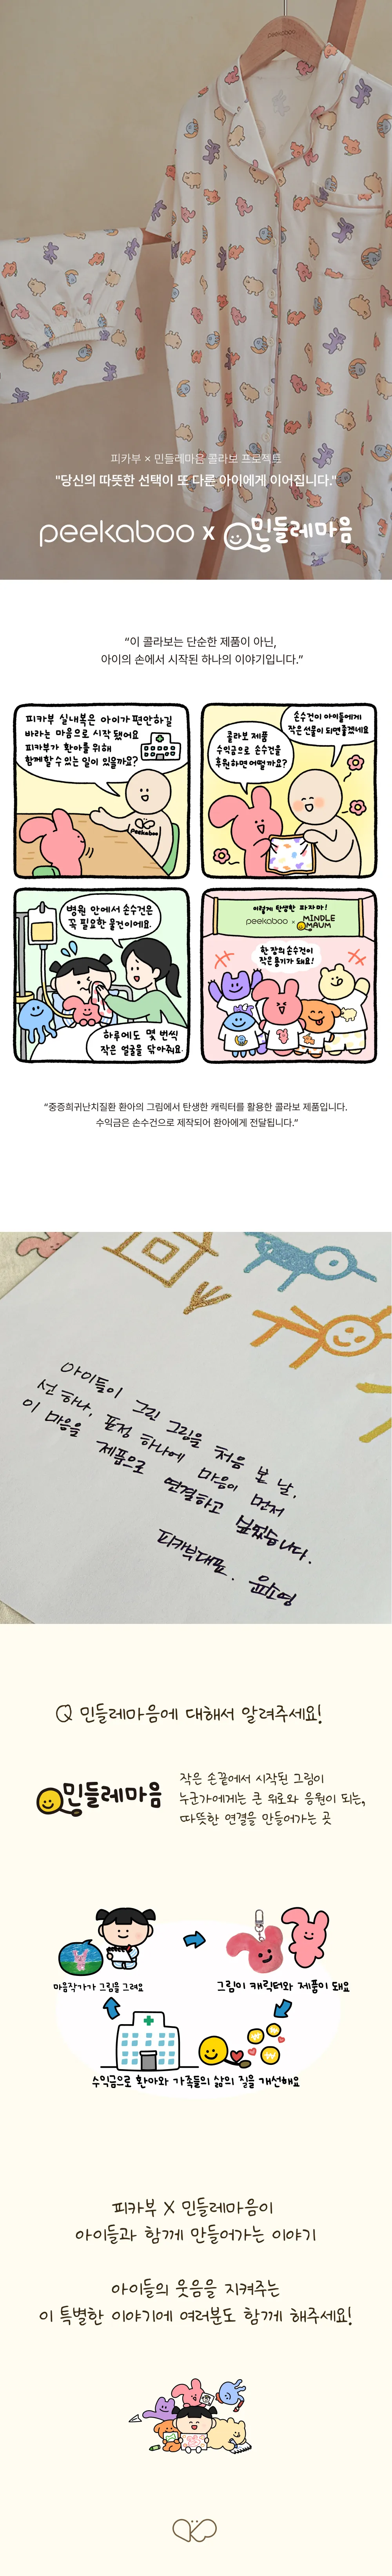 peekaboo
피카부 × 민들레마음 콜라보 프로젝트
"당신의 따뜻한 선택이 또 다른 아이에게 이어집니다."
peekaboo x 민들레마음
“이 콜라보는 단순한 제품이 아닌,
아이의 손에서 시작된 하나의 이야기입니다.”
피카부 실내복은 아이가 편안하길
바라는 마음으로 시작 됐어요
피카부가 환아를 위해
함께할 수 있는 일이 있을까요?
Peekaboo
손수건이 아이들에게
작은 선물이 되면 좋겠네요
콜라보 제품
수익금으로 손수건을
후원하면 어떨까요?
병원 안에서 손수건은
꼭 필요한 물건이에요.
하루에도 몇 번씩
작은 얼굴을 닦아줘요
이렇게 탄생한 파자마!
peekaboo × MINDLE
MAUM
한 장의 손수건이
작은 용기가 돼요!
“중증희귀난치질환 환아의 그림에서 탄생한 캐릭터를 활용한 콜라보 제품입니다.
수익금은 손수건으로 제작되어 환아에게 전달됩니다.”
아이들이 그린 그림을 처음 본 날,
선 하나, 표정 하나에 마음이 먼저
이 마음을 제품으로 연결하고 싶었습니다.
피카부대표. 윤소영
Q 민들레마음에 대해서 알려주세요!
민들레마음
작은 손끝에서 시작된 그림이
누군가에게는 큰 위로와 응원이 되는,
따뜻한 연결을 만들어가는 곳
마음작가가 그림을 그려요
그림이 캐릭터와 제품이 돼요
수익금으로 환아와 가족들의 삶의 질을 개선해요
피카부 X 민들레마음이
아이들과 함께 만들어가는 이야기
아이들의 웃음을 지켜주는
이 특별한 이야기에 여러분도 함께 해주세요!